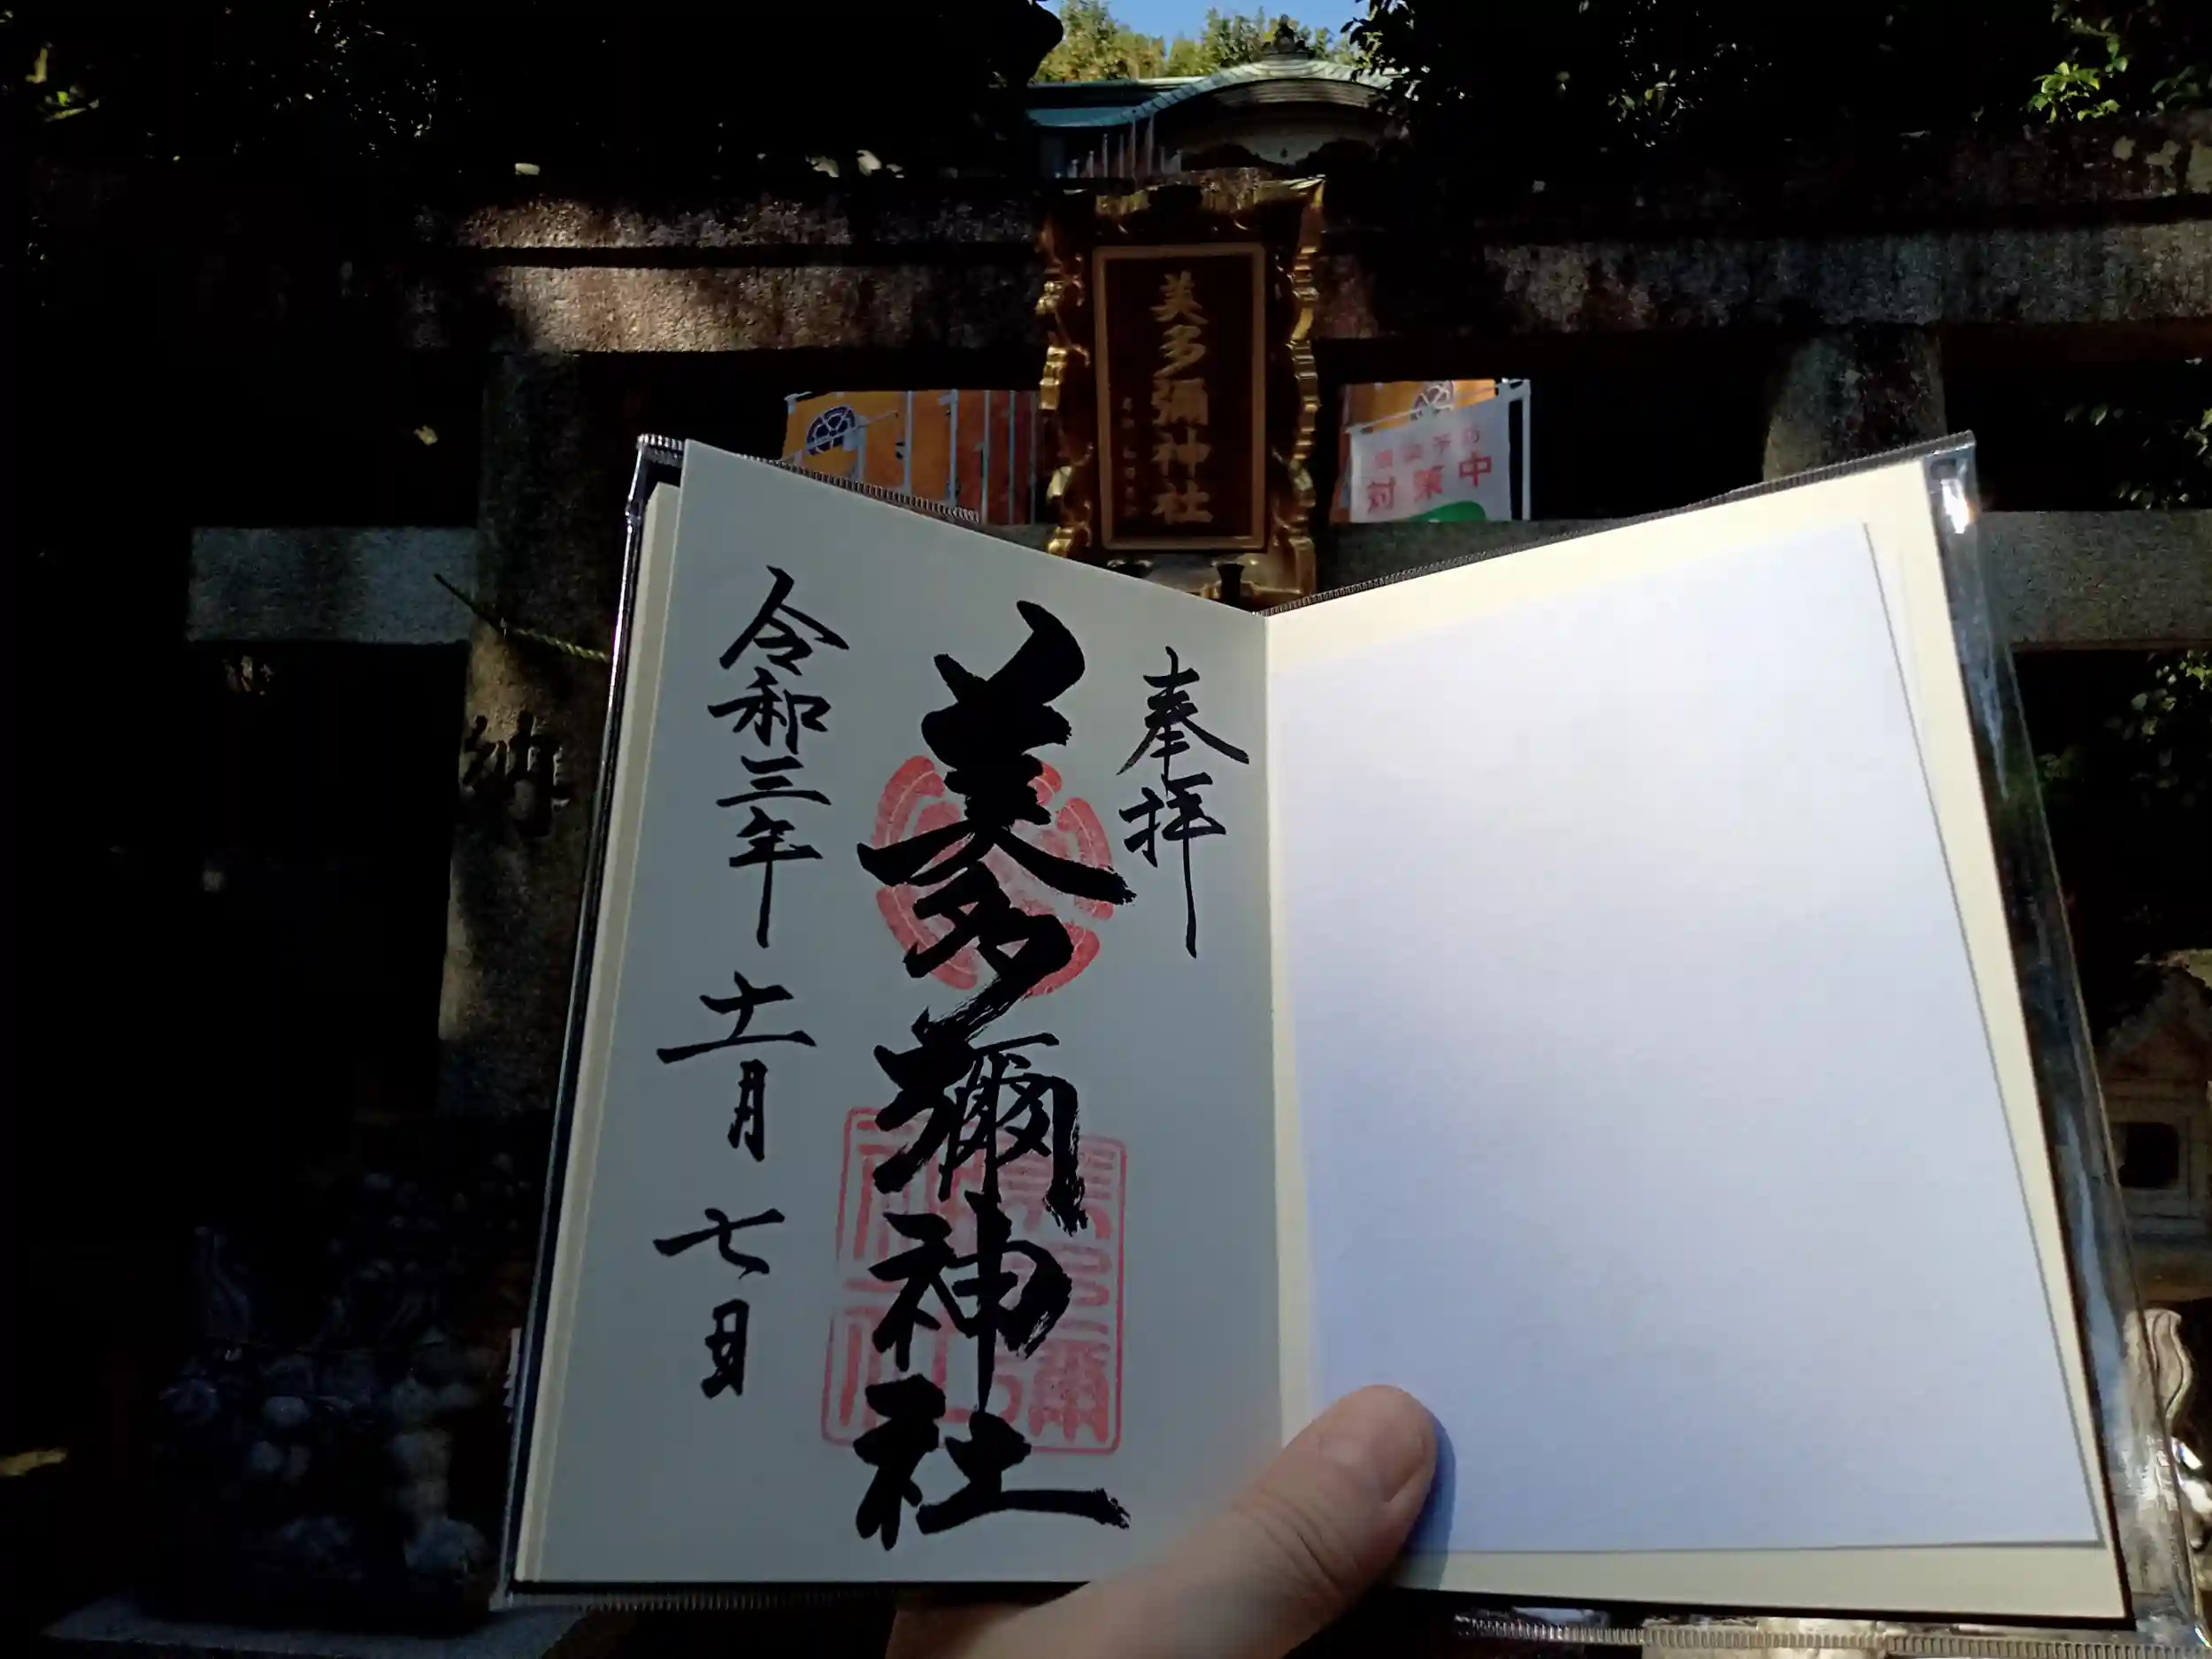 美多彌神社
感染予防
対策中
神
奉拝
美多彌神社
令和三年十一月七日